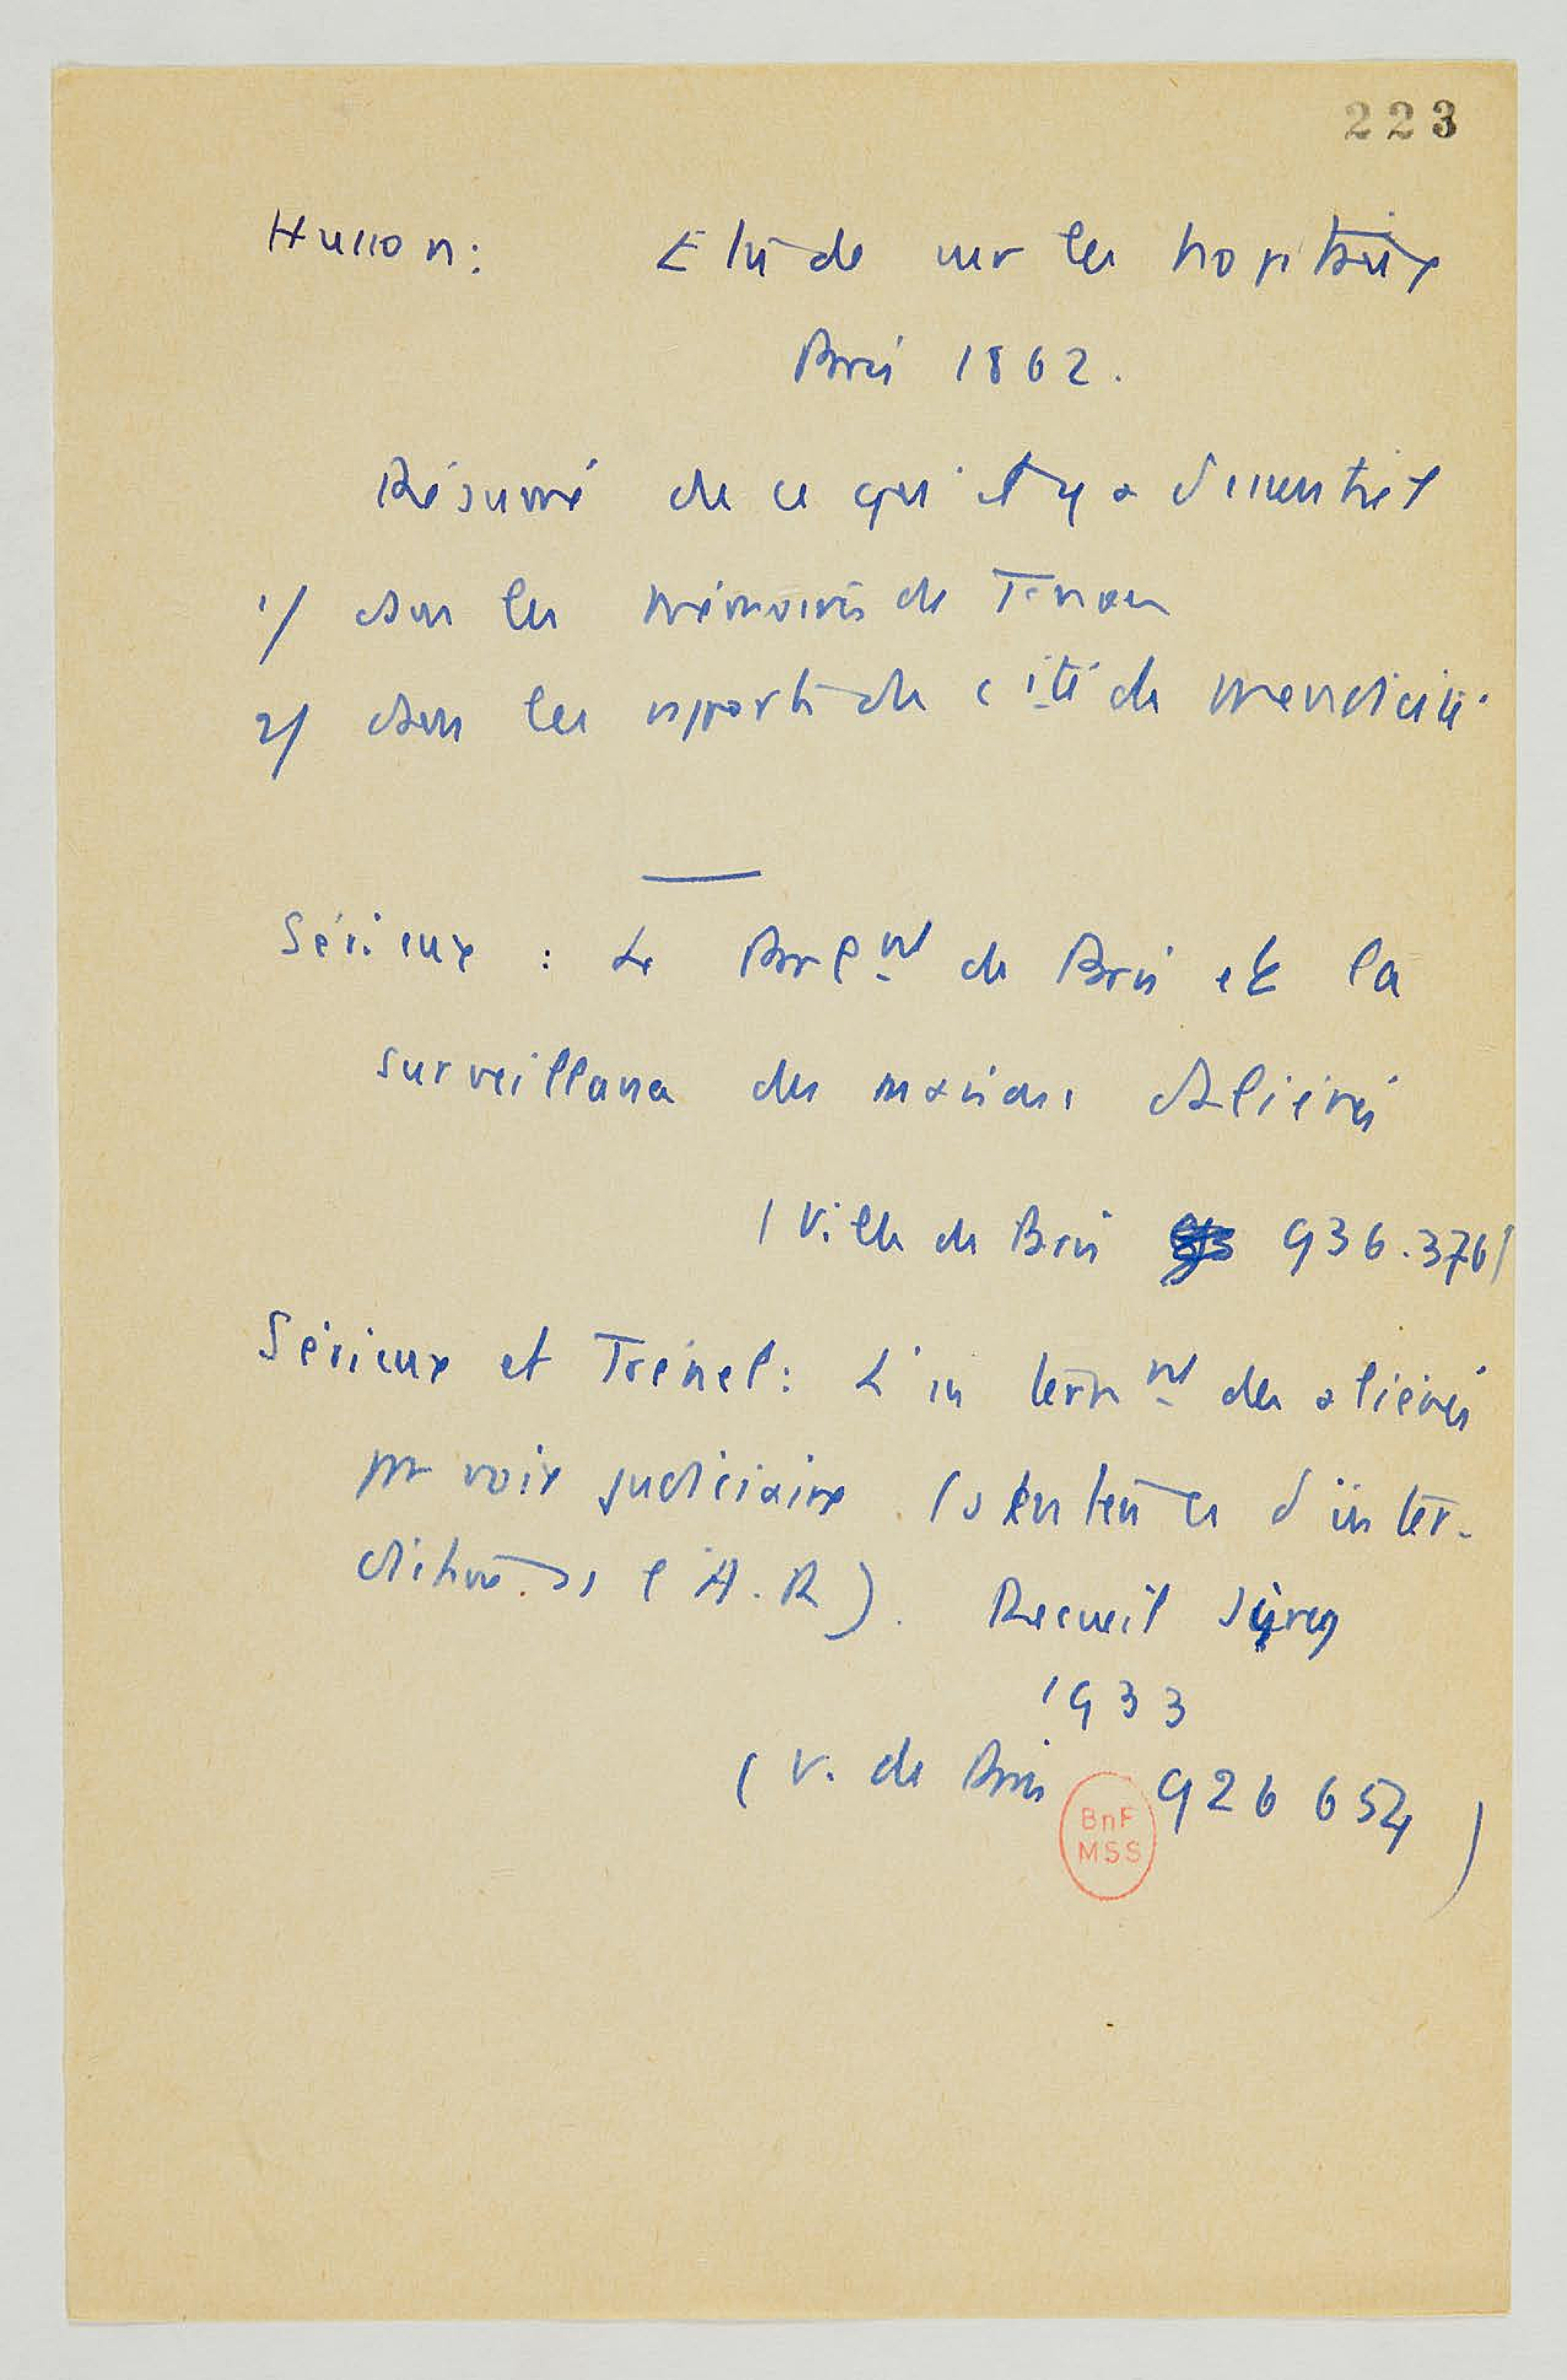 223
Husson : Etude sur les hopitaux
Paris 1862.
Résumé de ce qu'il y a d'essentiel
1/ dans les mémoires de Tenon
2/ dans les rapports du cité de mendicité
Sérieux : Le Parlnt de Paris et la
surveillance des maisons d'Aliénés
(Ville de Paris 936.376)
Sérieux et Trénel : L'internnt des aliénés
par voie judiciaire (sentences d'inter-
diction ss l'A.R). Recueil Sirey
1933
(V. de Paris 926 654)
BnF
MSS